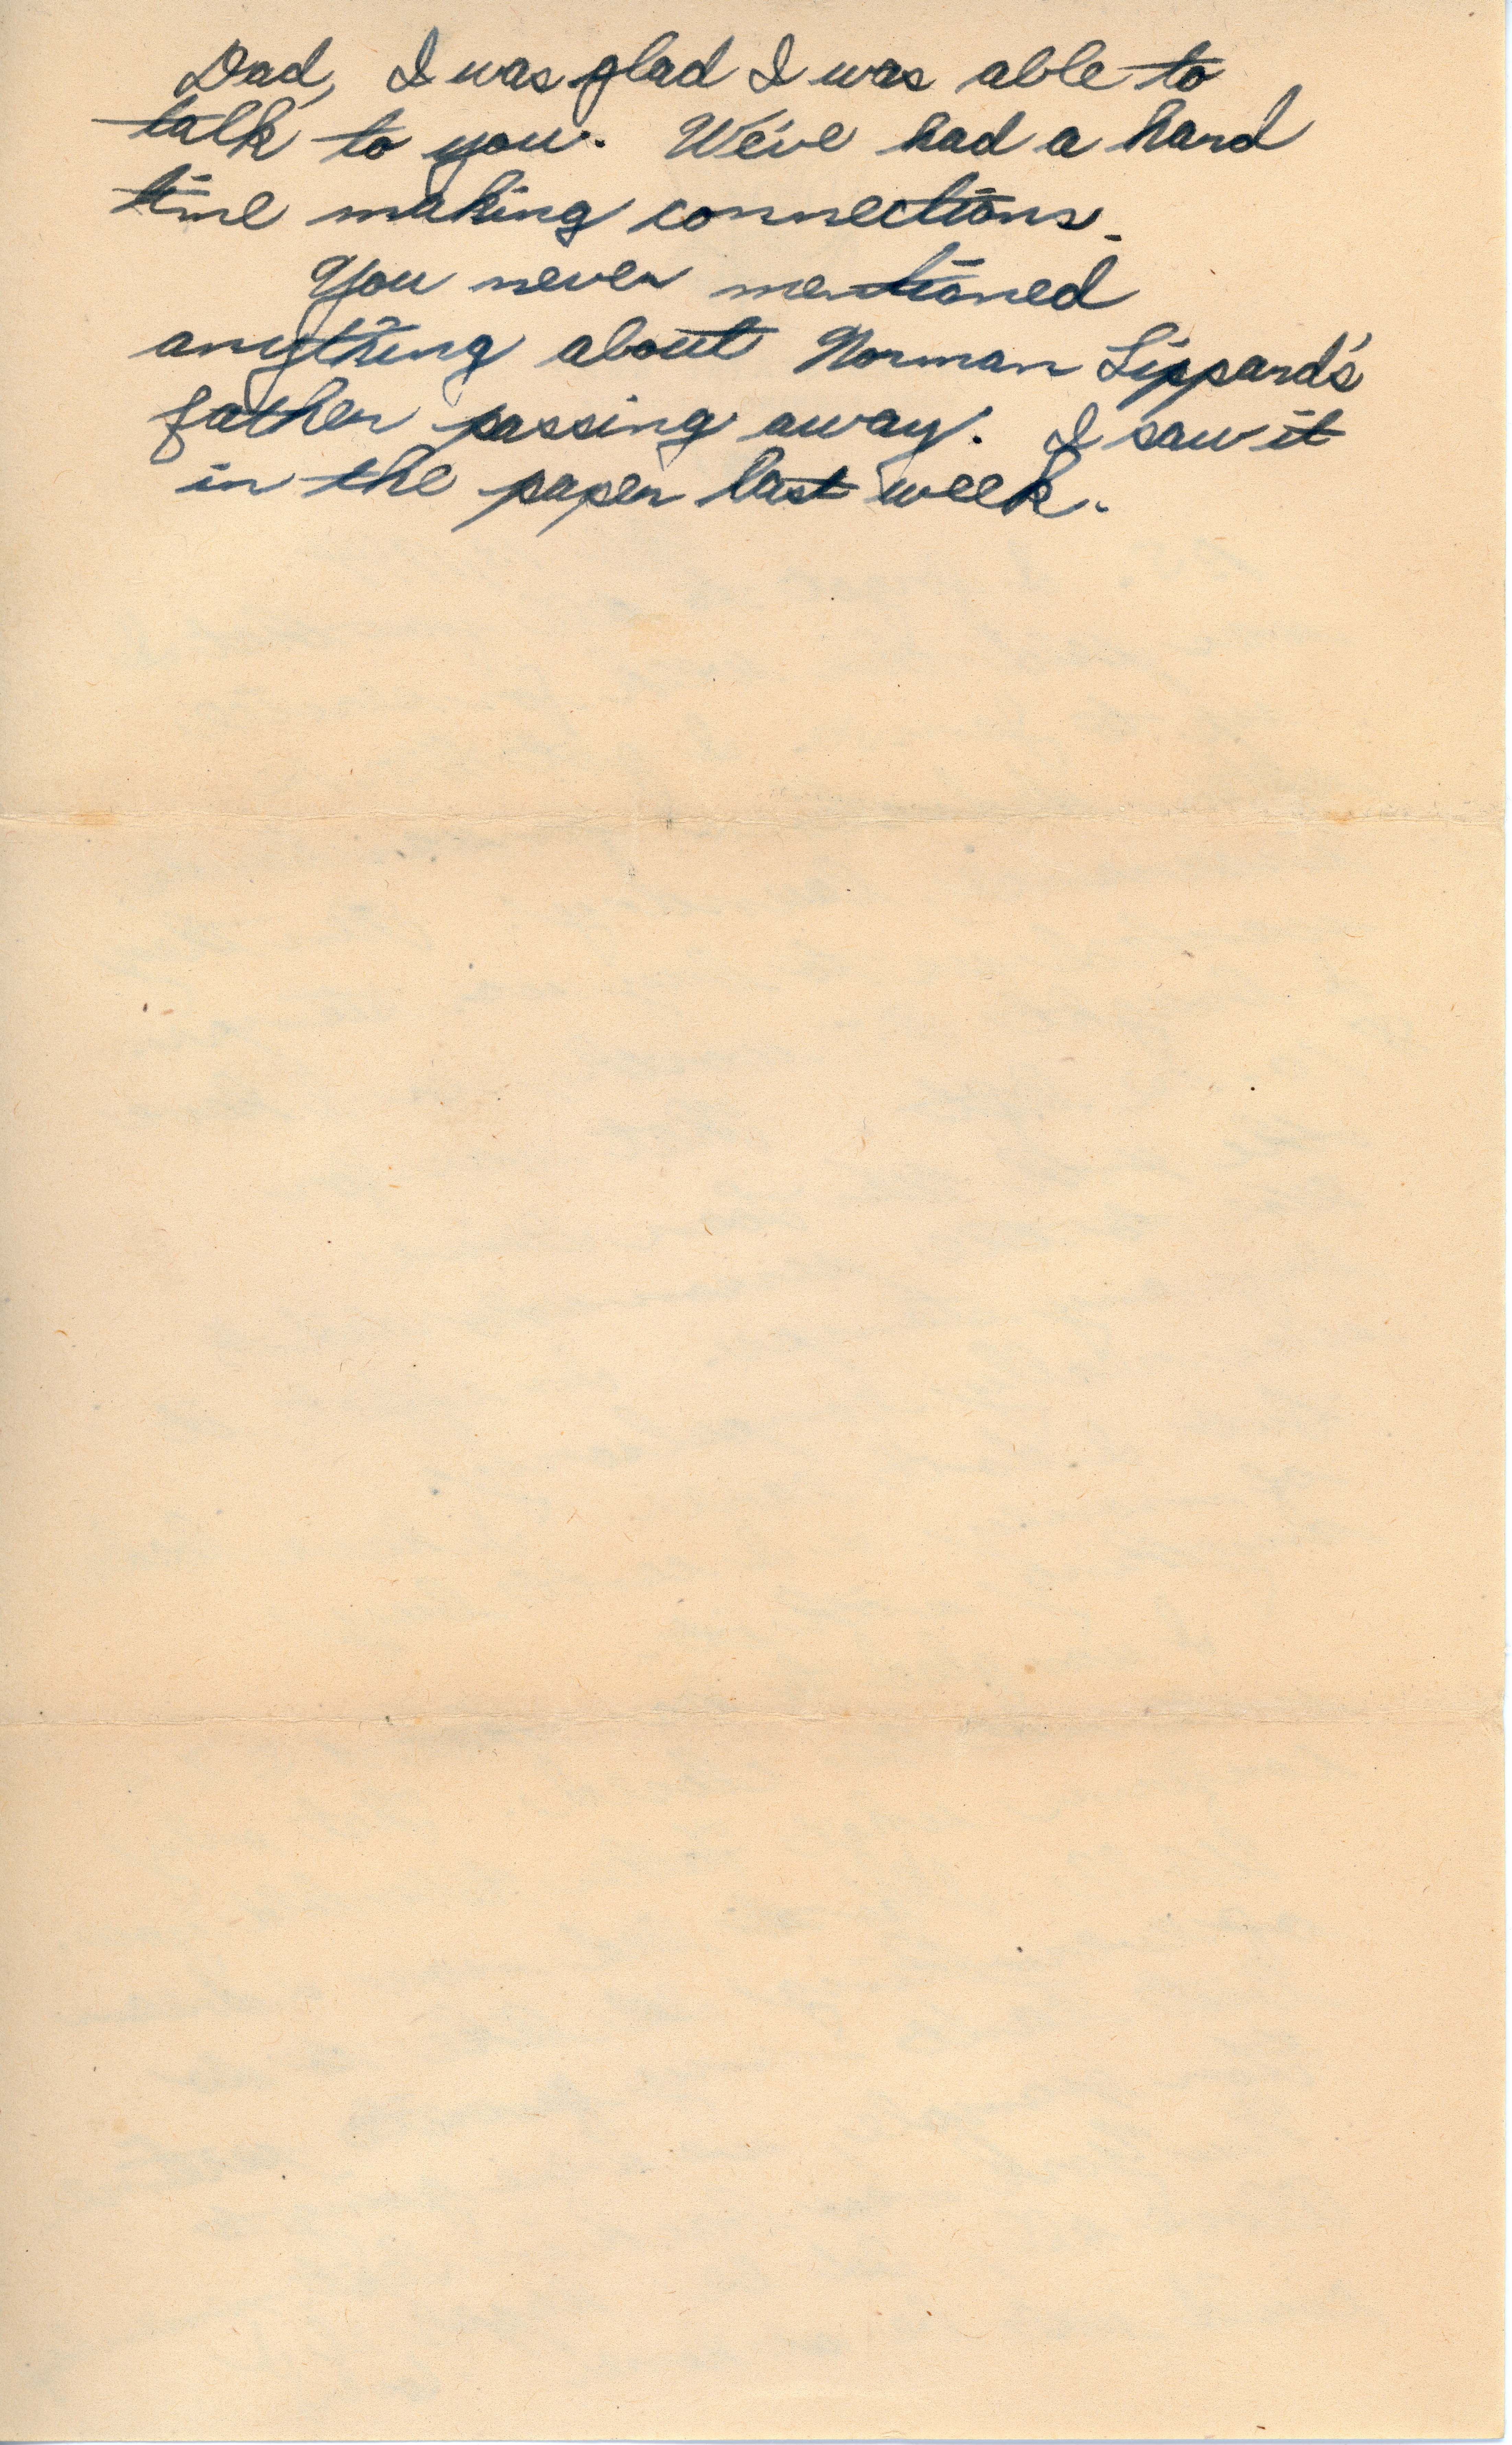 Dad, I was glad I was able to
talk to you. We've had a hard
time making connections.
You never mentioned
anything about Norman Lippard's
father passing away. I saw it
in the paper last week.